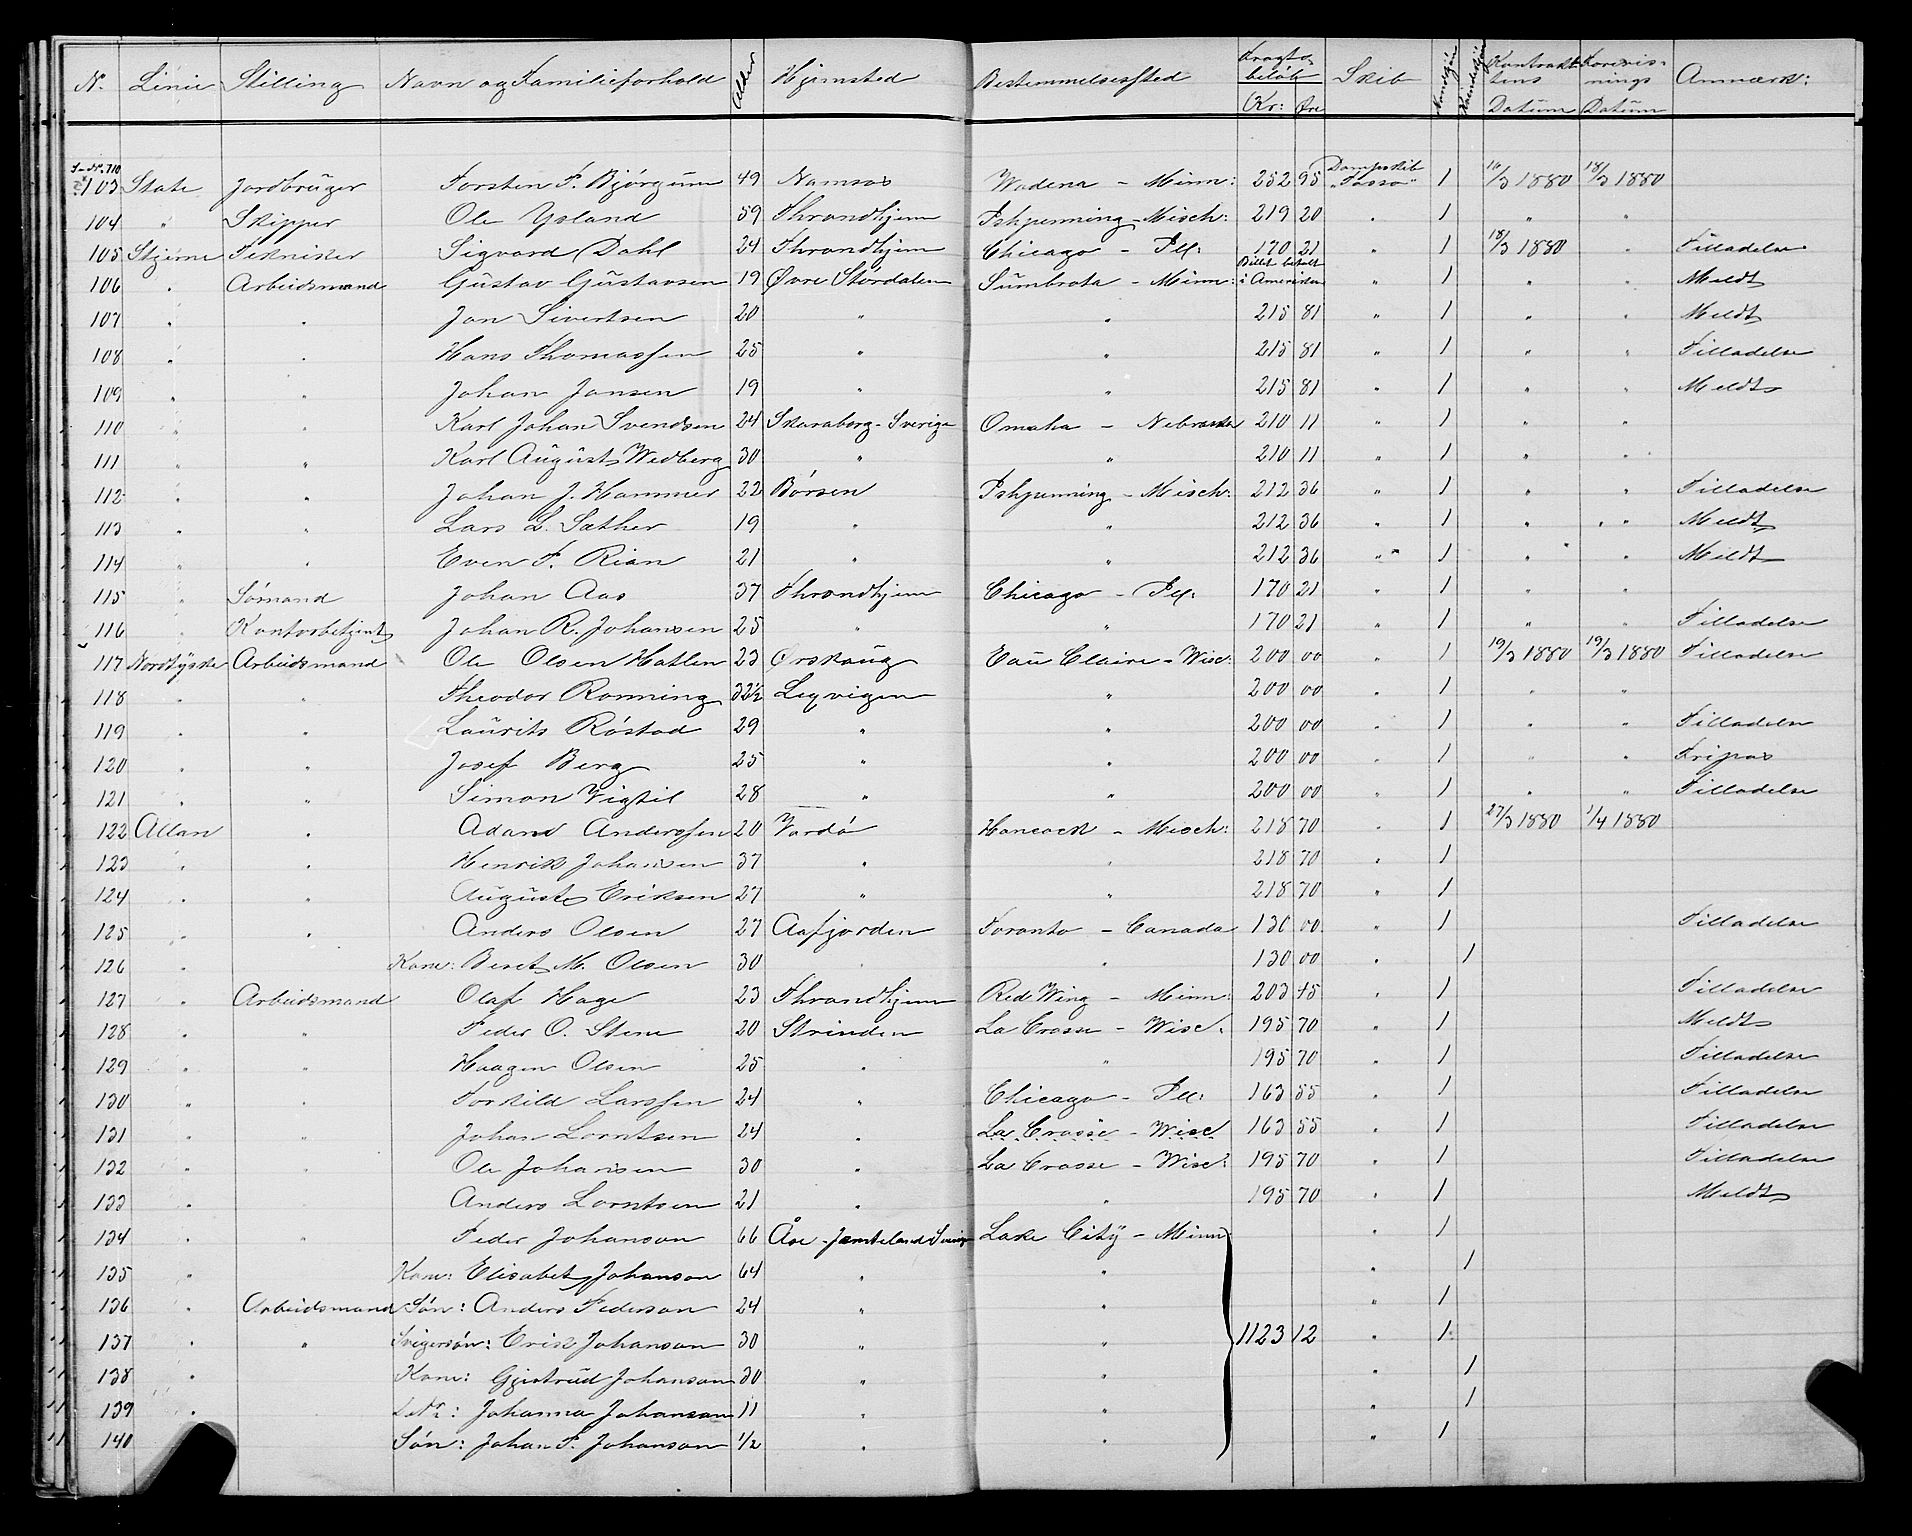 N. Linie Stilling Navn og Familieforhold Alder Hjemsted Bestemmelsessted Fragtbeløb Kr: Øre Skib Mandkjøn Kvindekjøn Kontraktens Datum Forevisnings Datum Anmærk:
103 State Jordbruger Torsten F. Bjørgum 49 Namsos Wadena - Minn: 252 95 Dampskib "Tasso" 1 16/3 1880 18/3 1880
104 " Skipper Ole Ysland 59 Throndhjem Ishpenning - Misch: 219 20 " 1 " "
105 Stjerne Tekniker Sigvard Dahl 24 Throndhjem Chicago - Ill: 170 21 " 1 18/3 1880 " Tilladelse
106 " Arbeidsmand Gustav Gustavsen 19 Øvre Størdalen Sumbrota - Minn: Billet betalt i Amerika " 1 " " Meldt
107 " " Jon Sivertsen 20 " " 215 81 " 1 " " Meldt
108 " " Hans Thomassen 25 " " 215 81 " 1 " " Tilladelse
109 " " Johan Jansen 19 " " 215 81 " 1 " " Meldt
110 " " Karl Johan Svendsen 24 Skaraborg - Sverige Omaha - Nebraska 210 11 " 1 " "
111 " " Karl August Wedberg 30 " " 210 11 " 1 " "
112 " " Johan J. Hammer 22 Børsen Ishpenning - Misch: 212 36 " 1 " " Tilladelse
113 " " Lars L. Sæther 19 " " 212 36 " 1 " " Meldt
114 " " Even F. Rian 21 " " 212 36 " 1 " " Meldt
115 " Sømand Johan Aas 37 Throndhjem Chicago - Ill: 170 21 " 1 " "
116 " Kontorbetjent Johan R. Johansen 25 " " 170 21 " 1 " " Tilladelse
117 Nordtyske Arbeidsmand Ole Olsen Hatlen 23 Ørskaug Eau Claire - Wisc: 200 00 " 1 19/3 1880 19/3 1880 Tilladelse
118 " " Theodor Ronning 32½ Leqvigen " 200 00 " 1 " "
119 " " Laurits Røstad 29 " " 200 00 " 1 " " Tilladelse
120 " " Josef Berg 25 " " 200 00 " 1 " " Fripas
121 " " Simon Vigtil 28 " " 200 00 " 1 " " Tilladelse
122 Allan " Adam Anderssen 20 Vardø Hancock - Misch: 218 70 " 1 27/3 1880 1/4 1880
123 " " Henrik Johansen 37 " " 218 70 " 1
124 " " August Eriksen 27 " " 218 70 " 1
125 " " Anders Olsen 27 Aafjorden Toronto - Canada 130 00 " 1 Tilladelse
126 " Kone: Beret M. Olsen 30 " " 130 00 " 1
127 " Arbeidsmand Olaf Hage 23 Throndhjem Red Wing - Minn: 203 45 " 1 Tilladelse
128 " " Peder O. Stene 20 Strinden La Crosse - Wisc: 195 70 " 1 Meldt
129 " " Haagen Olsen 25 " " 195 70 " 1 Tilladelse
130 " " Torkild Larssen 24 " Chicago - Ill: 163 55 " 1 Tilladelse
131 " " Johan Lorntsen 24 " La Crosse - Wisc 163 55 " 1 Tilladelse
132 " " Ole Johansen 30 " La Crosse - Wisc: 195 70 " 1 Tilladelse
133 " " Anders Lorntsen 21 " " 195 70 " 1 Meldt
134 " " Peder Johanson 66 Åse - Jemteland Sverige Lake City - Minn: " 1
135 " Kone: Elisabet Johanson 64 " " " 1
136 " Arbeidsmand Søn: Anders Pederson 24 " " " 1
137 " " Svigersøn: Erik Johanson 30 " " 1123 12 " 1
138 " Kone: Gjertrud Johanson 30 " " " 1
139 " Johanna Johanson 11 " " " 1
140 " Søn: Johan P. Johanson ½ " " " 1